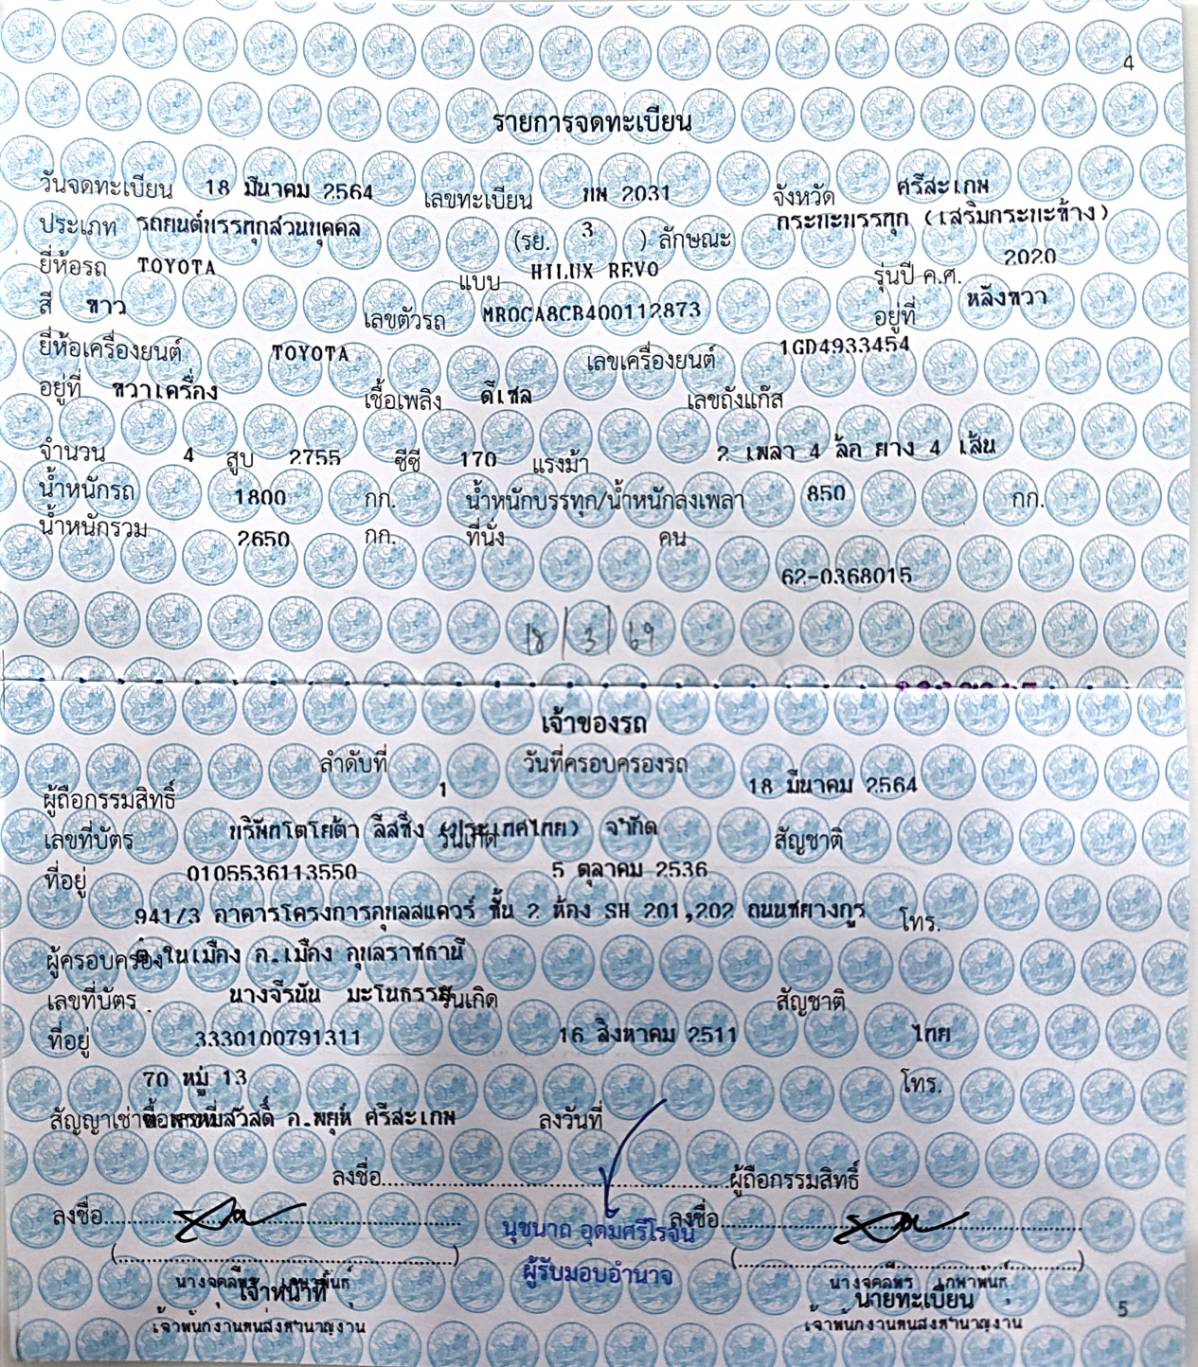 4
รายการจดทะเบียน
วันจดทะเบียน 18 มีนาคม 2564 เลขทะเบียน 2031 จังหวัด ศรีสะเกษ
ประเภท รถยนต์บรรทุกส่วนบุคคล (รย. 3 ) ลักษณะ กระบะบรรทุก (เสริมกระบะข้าง)
ยี่ห้อรถ TOYOTA แบบ HILUX REVO รุ่นปี ค.ศ. 2020
สี ขาว เลขตัวรถ MR0CA8CB400112873 อยู่ที่ หลังขวา
ยี่ห้อเครื่องยนต์ TOYOTA เลขเครื่องยนต์ 1GD4933454
อยู่ที่ ขวาเครื่อง เชื้อเพลิง ดีเซล เลขถังแก๊ส
จำนวน 4 สูบ 2755 ซีซี 170 แรงม้า 2 เพลา 4 ล้อ ยาง 4 เส้น
น้ำหนักรถ 1800 กก. น้ำหนักบรรทุก/น้ำหนักลงเพลา 850 กก.
น้ำหนักรวม 2650 กก. ที่นั่ง คน
62-0368015
18/3/69
เจ้าของรถ
ลำดับที่ 1 วันที่ครอบครองรถ 18 มีนาคม 2564
ผู้ถือกรรมสิทธิ์ บริษัทโตโยต้า ลีสซิ่ง (ประเทศไทย) จำกัด
เลขที่บัตร 0105536113550 วันเกิด 5 ตุลาคม 2536 สัญชาติ
ที่อยู่ 941/3 อาคารโครงการอุบลสแควร์ ชั้น 2 ห้อง SH 201,202 ถนนชยางกูร โทร.
ต.ในเมือง อ.เมือง อุบลราชธานี
ผู้ครอบครอง นางจีรนัน มะโนธรรม
เลขที่บัตร 3330100791311 วันเกิด 16 สิงหาคม 2511 สัญชาติ ไทย
ที่อยู่ 70 หมู่ 13 โทร.
ต.พรหมสวัสดิ์ อ.พยุห์ ศรีสะเกษ
สัญญาเช่าซื้อเลขที่ ลงวันที่
ลงชื่อ ผู้ถือกรรมสิทธิ์
ลงชื่อ ลงชื่อ
นุชนาถ อุดมศรีโรจน์
ผู้รับมอบอำนาจ
เจ้าหน้าที่ นายทะเบียน
เจ้าพนักงานขนส่งชำนาญงาน เจ้าพนักงานขนส่งชำนาญงาน
5